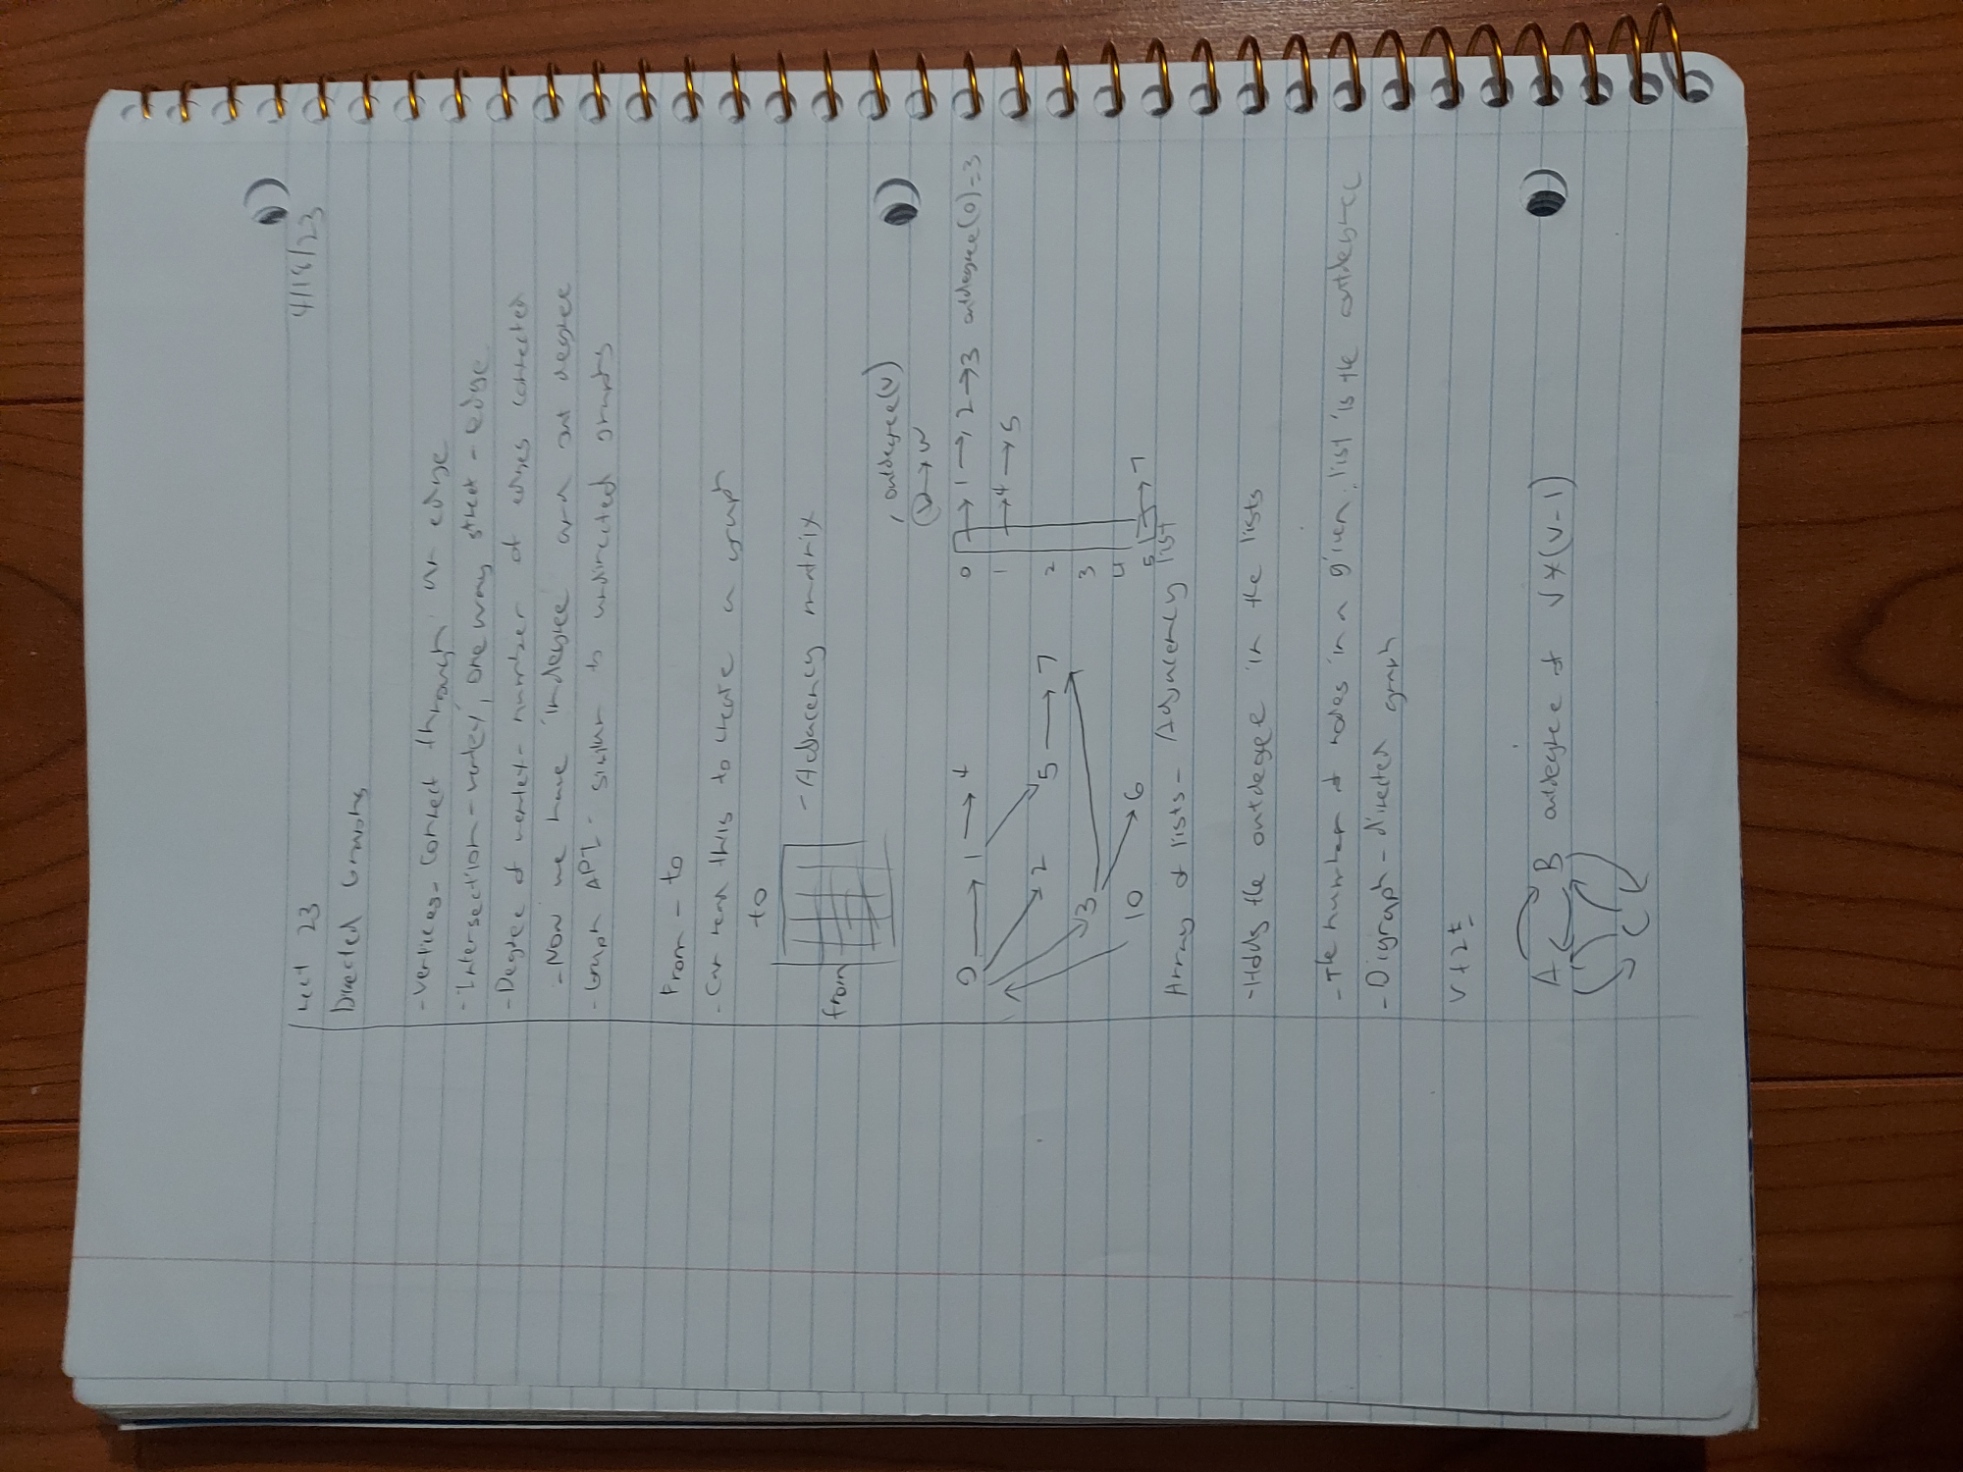 Lect 23 4/18/23
Directed Graphs
- Vertices - connect through an edge
- Intersection - vertex, one way street - edge
- Degree of vertex - number of edges connected
- Now we have indegree and out degree
- Graph API - similar to undirected graphs
From - to
- Can read this to create a graph
to
from - Adjacency matrix
outdegree(v)
v → w
0 → 1 → 4
2 5 → 7
3
10 6
0 → 1 → 2 → 3 outdegree(0) = 3
1 → 4 → 5
2
3
4
5 → 7
Array of lists - Adjacency list
- Holds the outdegree in the lists
- The number of nodes in a given list is the outdegree
- Digraph - directed graph
A B outdegree of V * (V - 1)
C